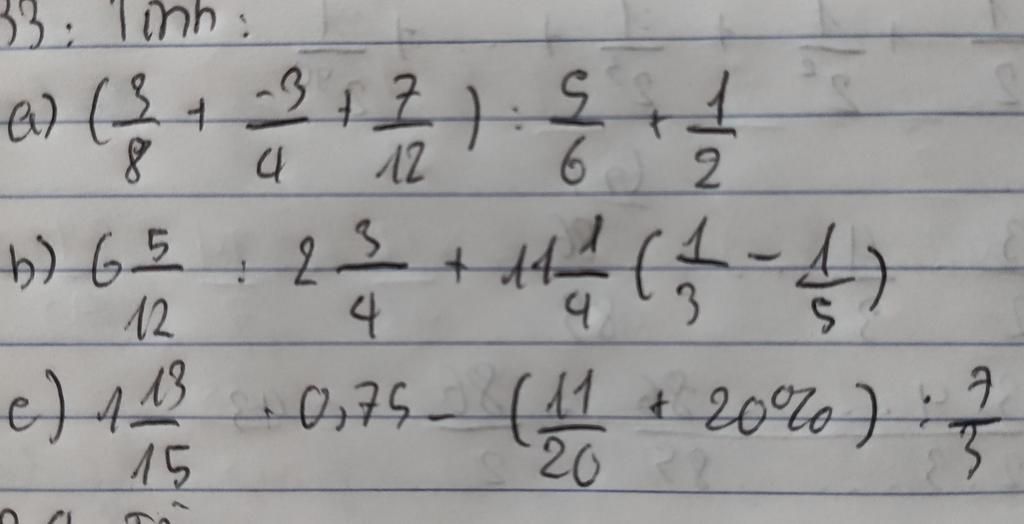 33: Tính:
a) (3/8 + -3/4 + 7/12) : 5/6 + 1/2
b) 6 5/12 : 2 3/4 + 11 1/4 (1/3 - 1/5)
c) 1 13/15 . 0,75 - (11/20 + 20%) : 7/3